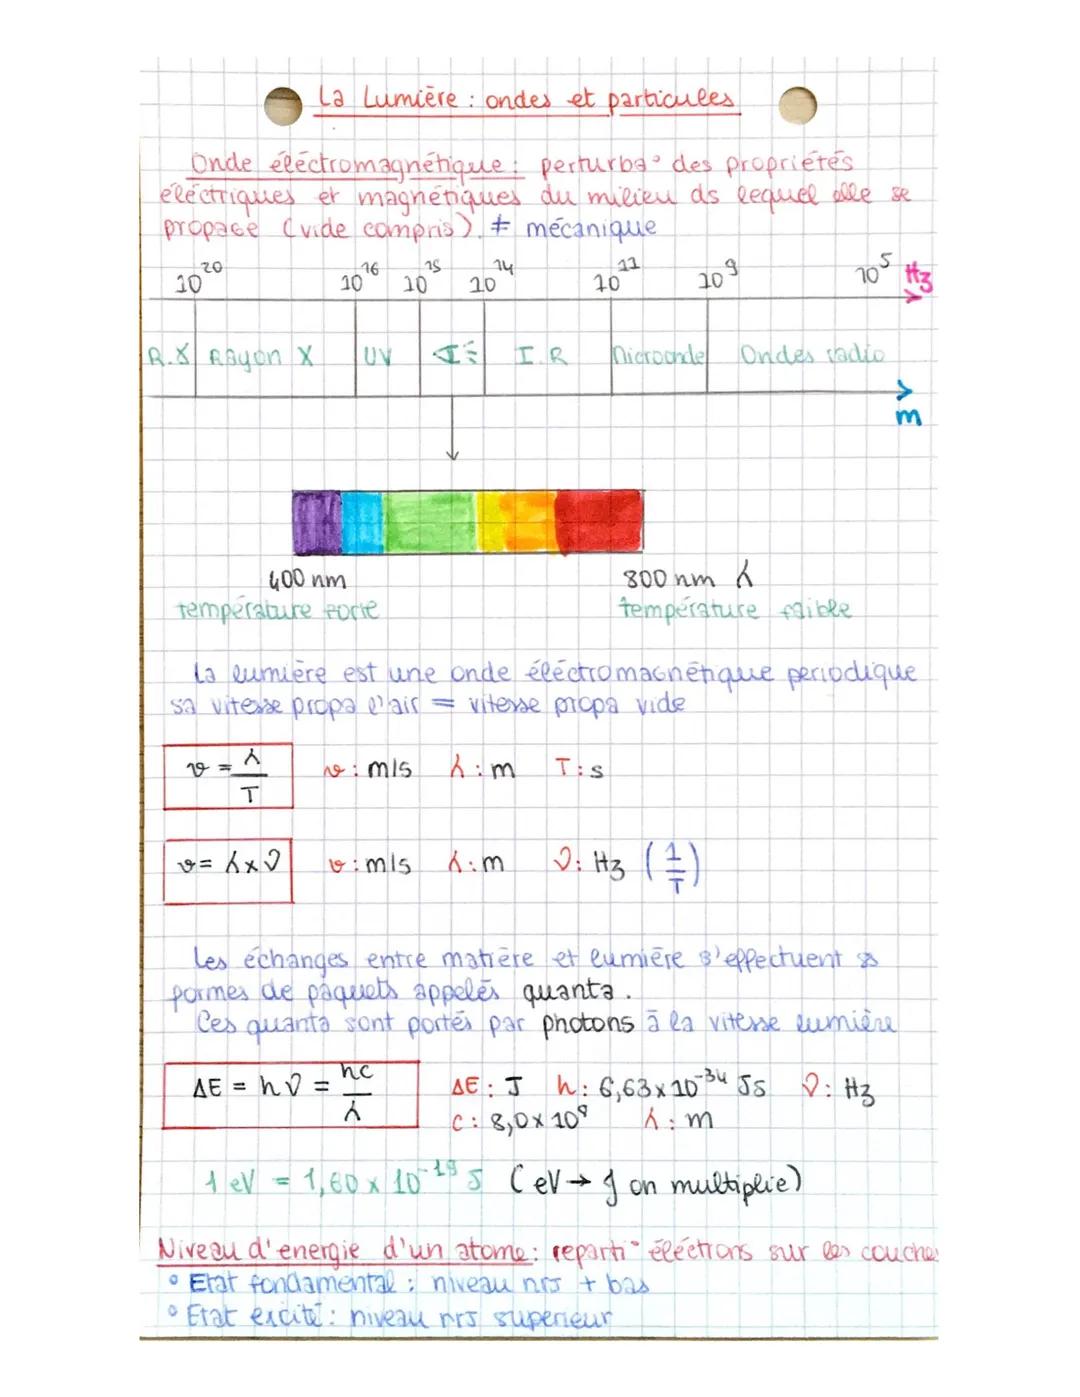 La Lumière : ondes et particules
Onde éléctromagnétique : perturba° des propriétés
éléctriques et magnétiques du milieu ds lequel elle se
propage (vide compris). ≠ mécanique
10²⁰ 10¹⁶ 10¹⁵ 10¹⁴ 10¹¹ 10⁹ 10⁵ Hz
R.γ Rayon X UV I.R Microonde Ondes radio
m
400 nm 800 nm λ
température forte température faible
La lumière est une onde éléctromagnétique periodique
sa vitesse propa l'air = vitesse propa vide
v = λ/T v : m/s λ : m T : s
v = λ x ν v : m/s λ : m ν : Hz (1/T)
Les échanges entre matière et lumière s'effectuent ss
formes de paquets appelés quanta.
Ces quanta sont portés par photons à la vitesse lumière
ΔE = hν = hc/λ ΔE : J h : 6,63 x 10⁻³⁴ Js ν : Hz
c : 8,0 x 10⁸ λ : m
1 eV = 1,60 x 10⁻¹⁹ J (eV → J on multiplie)
Niveau d'energie d'un atome : reparti° éléctrons sur les couches
° Etat fondamental : niveau nrj + bas
° Etat excité : niveau nrj superieur